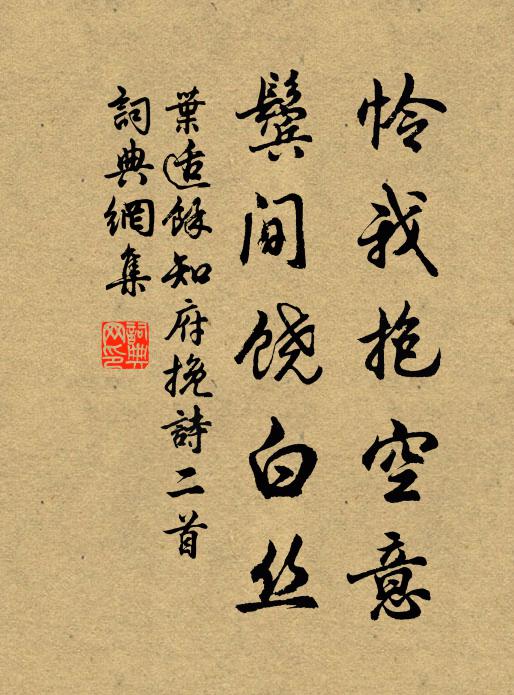 怜我抱空意
鬓间饶白丝
葉适餘知府挽詩二首
詞典網集
詞典网印